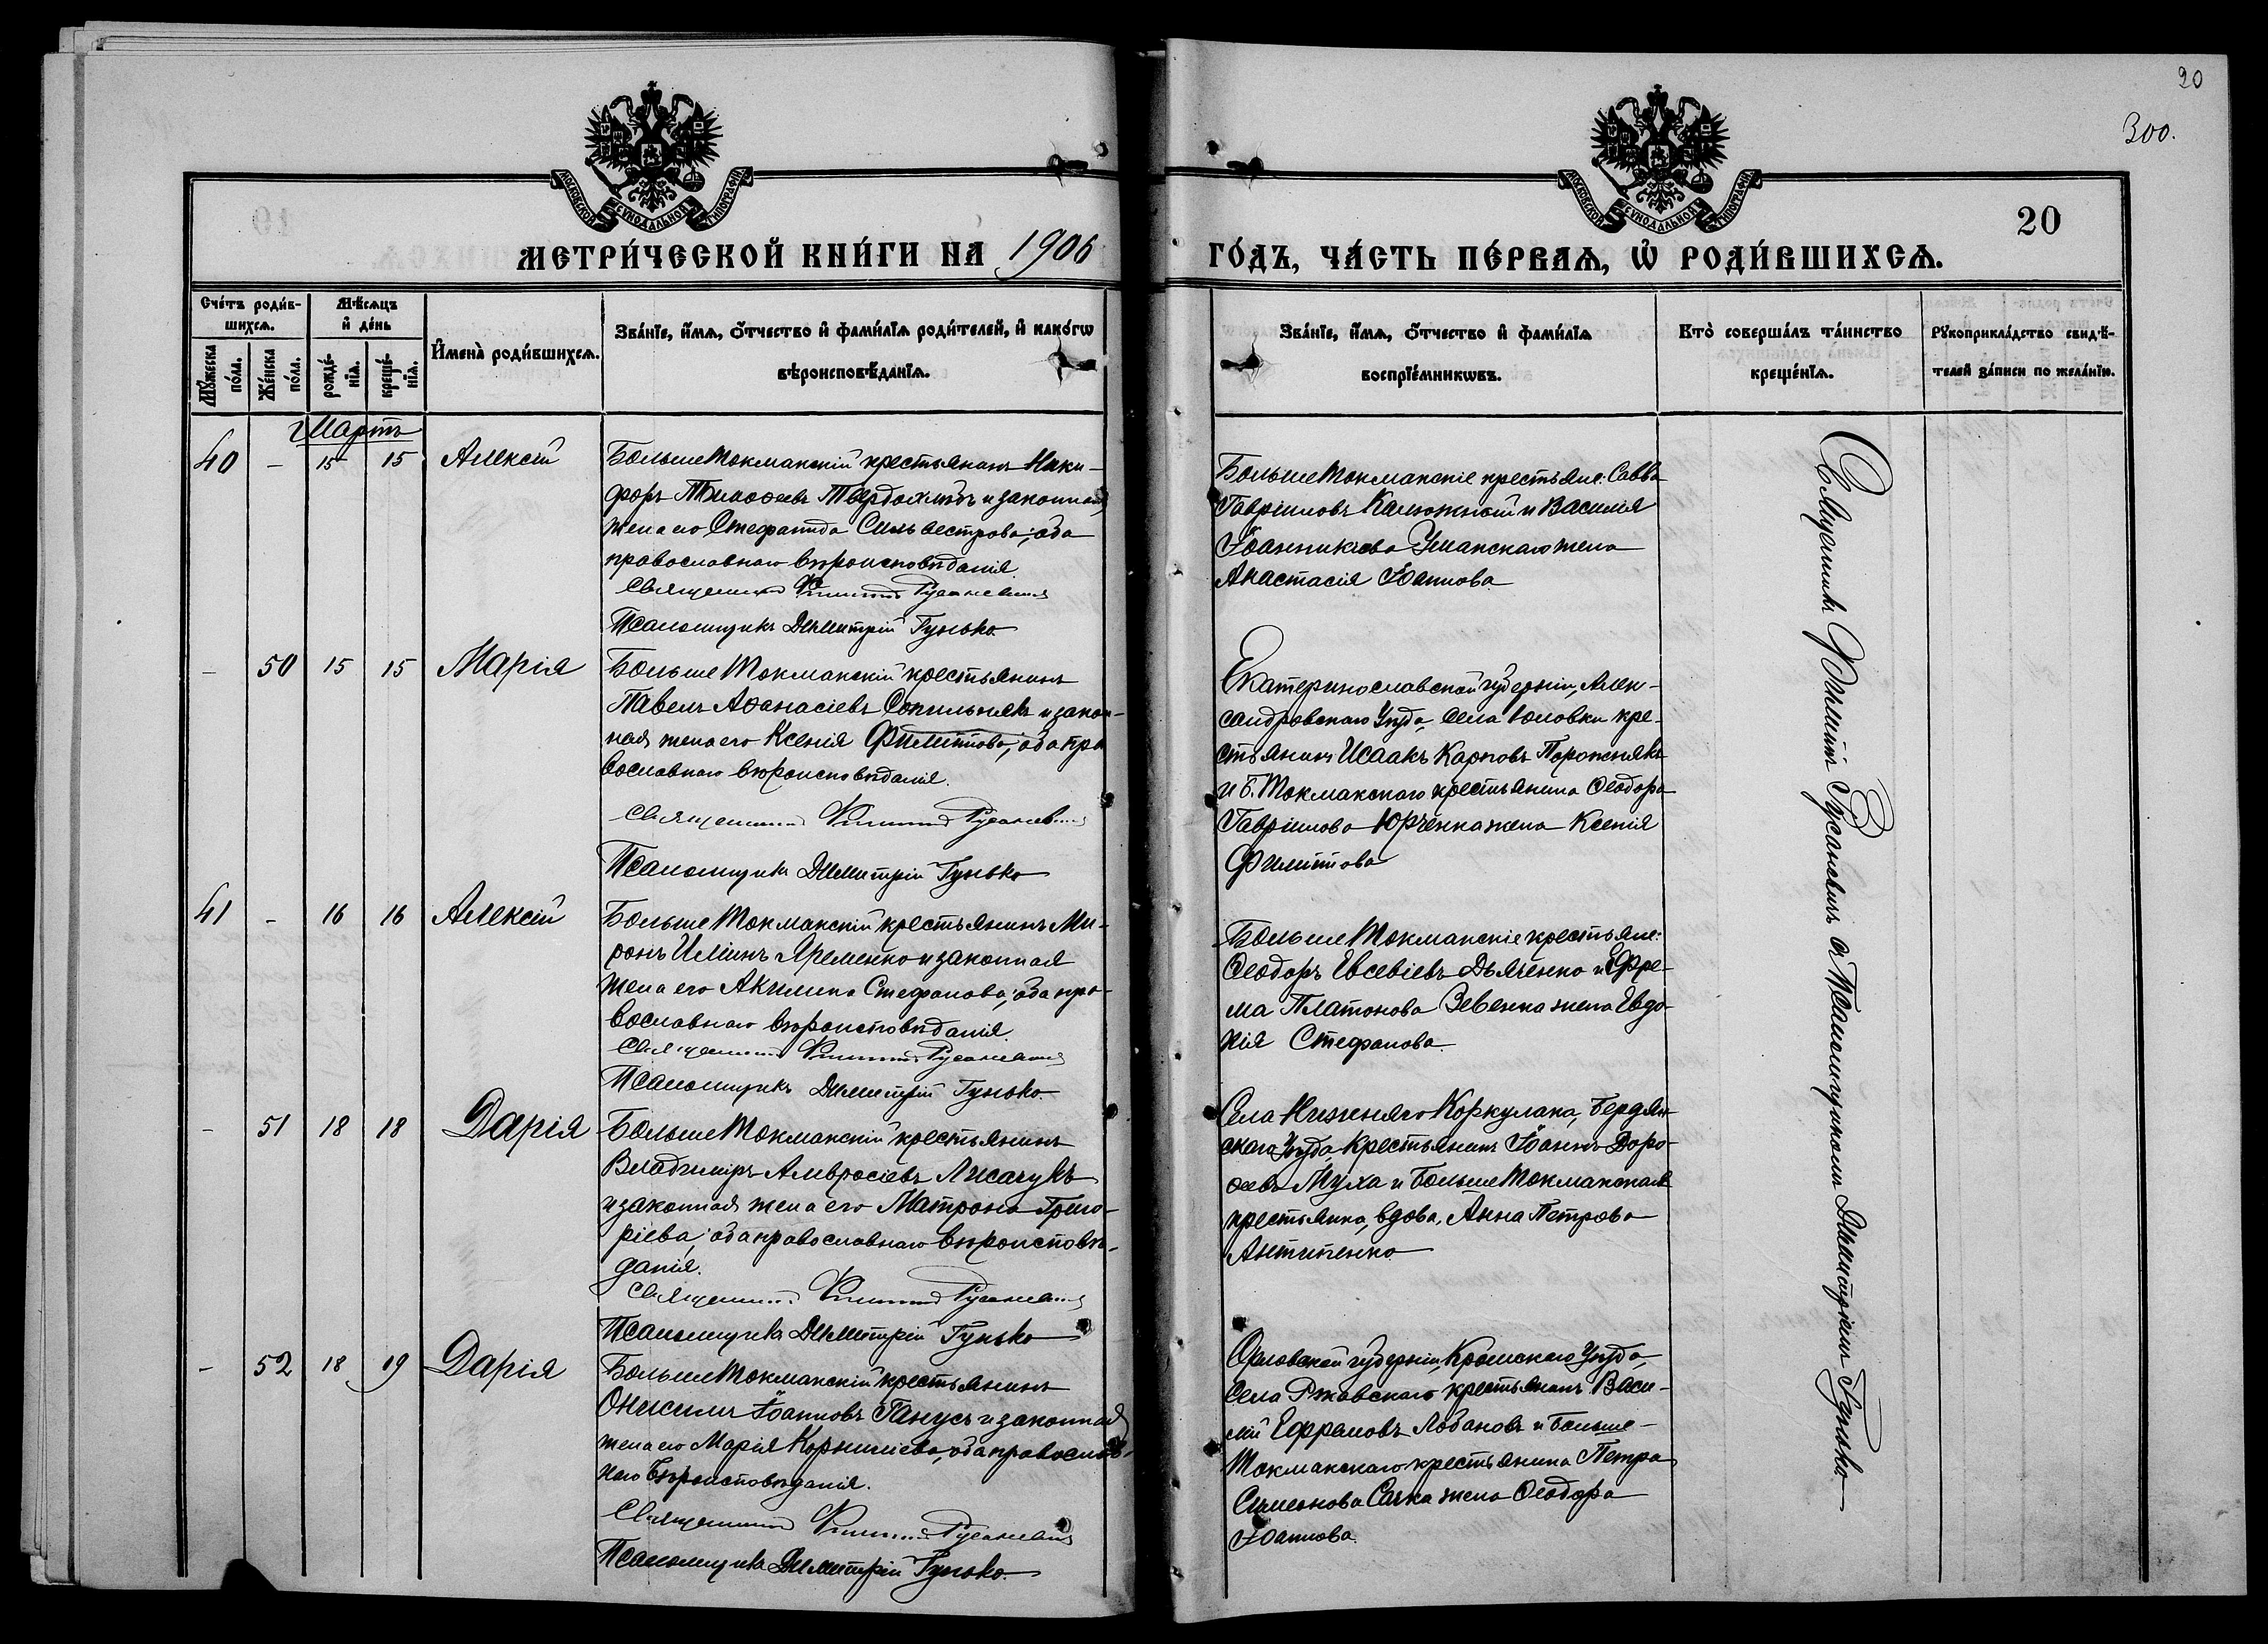 20
300.
МОСКОВСКОЙ СУНОДАЛЬНОЙ ТИПОГРАФІИ
МОСКОВСКОЙ СУНОДАЛЬНОЙ ТИПОГРАФІИ
20
МЕТРИ́ЧЕСКОЙ КНИ́ГИ НА 1906 ГО́ДЪ, ЧА́СТЬ ПЕ́РВАѦ, Ѡ҆ РОДИ́ВШИХСѦ.
Сче́тъ роди́в-
шихсѧ.
Мꙋ́жеска по́ла.
Же́нска по́ла.
Мѣ́сѧцъ и҆ де́нь
рожде́-нїѧ.
креще́-нїѧ.
И҆мена̀ роди́вшихсѧ.
Зва́нїе, и҆́мѧ, ѻ҆́тчество и҆ фами́лїѧ роди́телей, и҆ како́гѡ
вѣроисповѣ́данїѧ.
Зва́нїе, и҆́мѧ, ѻ҆́тчество и҆ фами́лїѧ
воспрїе́мникѡвъ.
Кто̀ соверша́лъ та́инство
креще́нїѧ.
Рꙋкоприкла́дство свидѣ́-
телей за́писи по жела́нїю.
Мартъ
40 - 15 15 Алексій
БольшеТокмакскій крестьянинъ Ники-
форъ Тимоѳеевъ Твердохлѣбъ и законная
жена его Стефанида Сильвестрова; оба
православнаго вѣроисповѣданія.
Священникъ Филиппъ Русаневичъ
Псаломщикъ Димитрій Гунько.
БольшеТокмакскіе крестьяне: Савва
Гавріиловъ Калюжный и Василія
Іоанникіева Уманскаго жена
Анастасія Іоаннова.
- 50 15 15 Марія
БольшеТокмакскій крестьянинъ
Павелъ Аѳанасіевъ Сопильнякъ и закон-
ная жена его Ксенія Филиппова; оба пра
вославнаго вѣроисповѣданія.
Священникъ Филиппъ Русаневичъ
Псаломщикъ Димитрій Гунько
Екатеринославской губерніи, Алек-
сандровскаго Уѣзда, села кре-
стьянинъ Исаакъ Карповъ Порожнякъ
и Б. Токмакскаго крестьянина Ѳеодора
Гавріилова Юрченка жена Ксенія
Филиппова
41 - 16 16 Алексій
БольшеТокмакскій крестьянинъ Ми-
ронъ Илiинъ Яременко и законная
жена его Акилина Стефанова; оба пра-
вославнаго вѣроисповѣданія.
Священникъ Филиппъ Русаневичъ
Псаломщикъ Димитрій Гунько.
БольшеТокмакскіе крестьяне:
Ѳеодоръ Евсевіевъ Дьяченко и Ефре-
ма Платонова Зевенка жена Евдо-
кія Стефанова.
- 51 18 18 Дарія
БольшеТокмакскій крестьянинъ
Владиміръ Амвросіевъ Лисачукъ
и законная жена его Матрона Григо-
ріева; оба православнаго вѣроисповѣ-
данія.
Священникъ Филиппъ Русаневичъ
Псаломщикъ Димитрій Гунько
Села Нижняго Коркулака, Бердян-
скаго Уѣзда, крестьянинъ Іоаннъ Доро-
ѳеевъ Муха и БольшеТокмакская
крестьянка, вдова, Анна Петрова
Антипенко
- 52 18 19 Дарія
БольшеТокмакскій крестьянинъ
Онисимъ Іоанновъ Ганусъ и законная
жена его Марія Корниліева, оба православ-
наго вѣроисповѣданія.
Священникъ Филиппъ Русаневичъ
Псаломщикъ Димитрій Гунько.
Орловской губерніи, Кромскаго Уѣзда,
села Ржавскаго крестьянинъ Васи-
лій Ефремовъ Лобановъ и Больше-
Токмакскаго крестьянина Петра
Симеонова Сачка жена Ѳеодора
Іоаннова.
Священникъ Филиппъ Русаневичъ съ Псаломщикомъ Димитріемъ Гунько